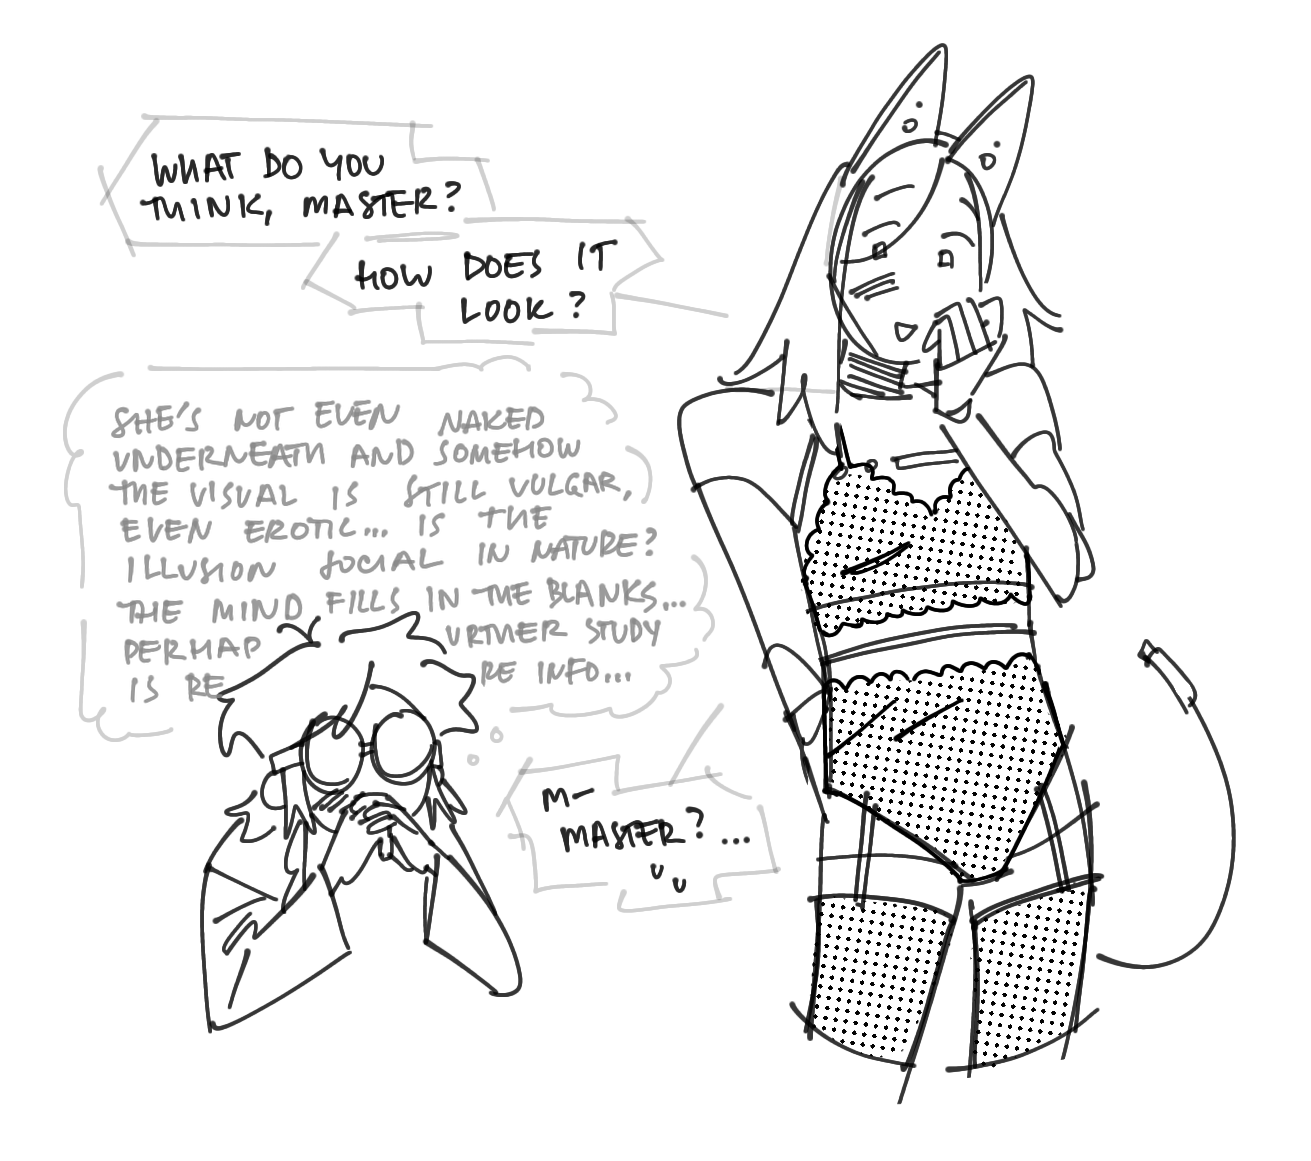 WHAT DO YOU
THINK, MASTER?
HOW DOES IT
LOOK?
SHE'S NOT EVEN NAKED
UNDERNEATH AND SOMEHOW
THE VISUAL IS STILL VULGAR,
EVEN EROTIC... IS THE
ILLUSION SOCIAL IN NATURE?
THE MIND FILLS IN THE BLANKS...
PERHAP URTHER STUDY
IS RE RE INFO...
M—
MASTER?...